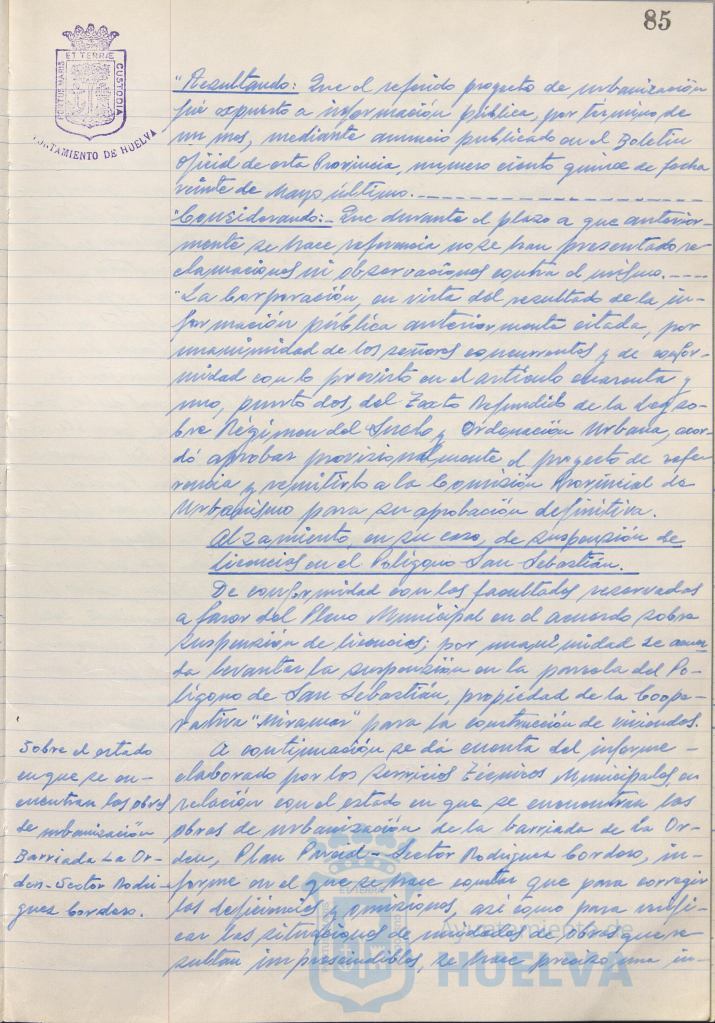 85
PORTUS MARIS ET TERRÆ CUSTODIA
AYUNTAMIENTO DE HUELVA
"Resultando: Que el referido proyecto de urbanización
fué expuesto a información pública, por término de
un mes, mediante anuncio publicado en el Boletín
Oficial de esta Provincia, número ciento quince de fecha
veinte de Mayo último.
"Considerando:- Que durante el plazo a que anterior-
mente se hace referencia no se han presentado re-
clamaciones ni observaciones contra el mismo.
"La Corporación, en vista del resultado de la in-
formación pública anteriormente citada, por
unanimidad de los señores concurrentes y de confor-
midad con lo previsto en el artículo cuarenta y
uno, punto dos, del Texto Refundido de la Ley so-
bre Régimen del Suelo y Ordenación Urbana, acor-
dó aprobar provisionalmente el proyecto de refe-
rencia y remitirlo a la Comisión Provincial de
Urbanismo para su aprobación definitiva.
Alzamiento, en su caso, de suspensión de
licencias en el Polígono San Sebastián.
De conformidad con las facultades reservadas
a favor del Pleno Municipal en el acuerdo sobre
suspensión de licencias; por unanimidad se acuer-
da levantar la suspensión en la parcela del Po-
lígono de San Sebastián, propiedad de la Coope-
rativa "Miramar" para la construcción de viviendas.
Sobre el estado
en que se en-
cuentran las obras
de urbanización
Barriada La Or-
den-Sector Rodrí-
guez Cordoso.
A continuación se dá cuenta del informe
elaborado por los Servicios Técnicos Municipales, en
relación con el estado en que se encuentran las
obras de urbanización de la barriada de La Or-
den, Plan Parcial-Sector Rodríguez Cordoso, in-
forme en el que se hace constar que para corregir
las deficiencias y omisiones, así como para unifi-
car las situaciones de unidades de obras que re-
sultan imprescindibles, se hace preciso una in-
Ayuntamiento de
HUELVA